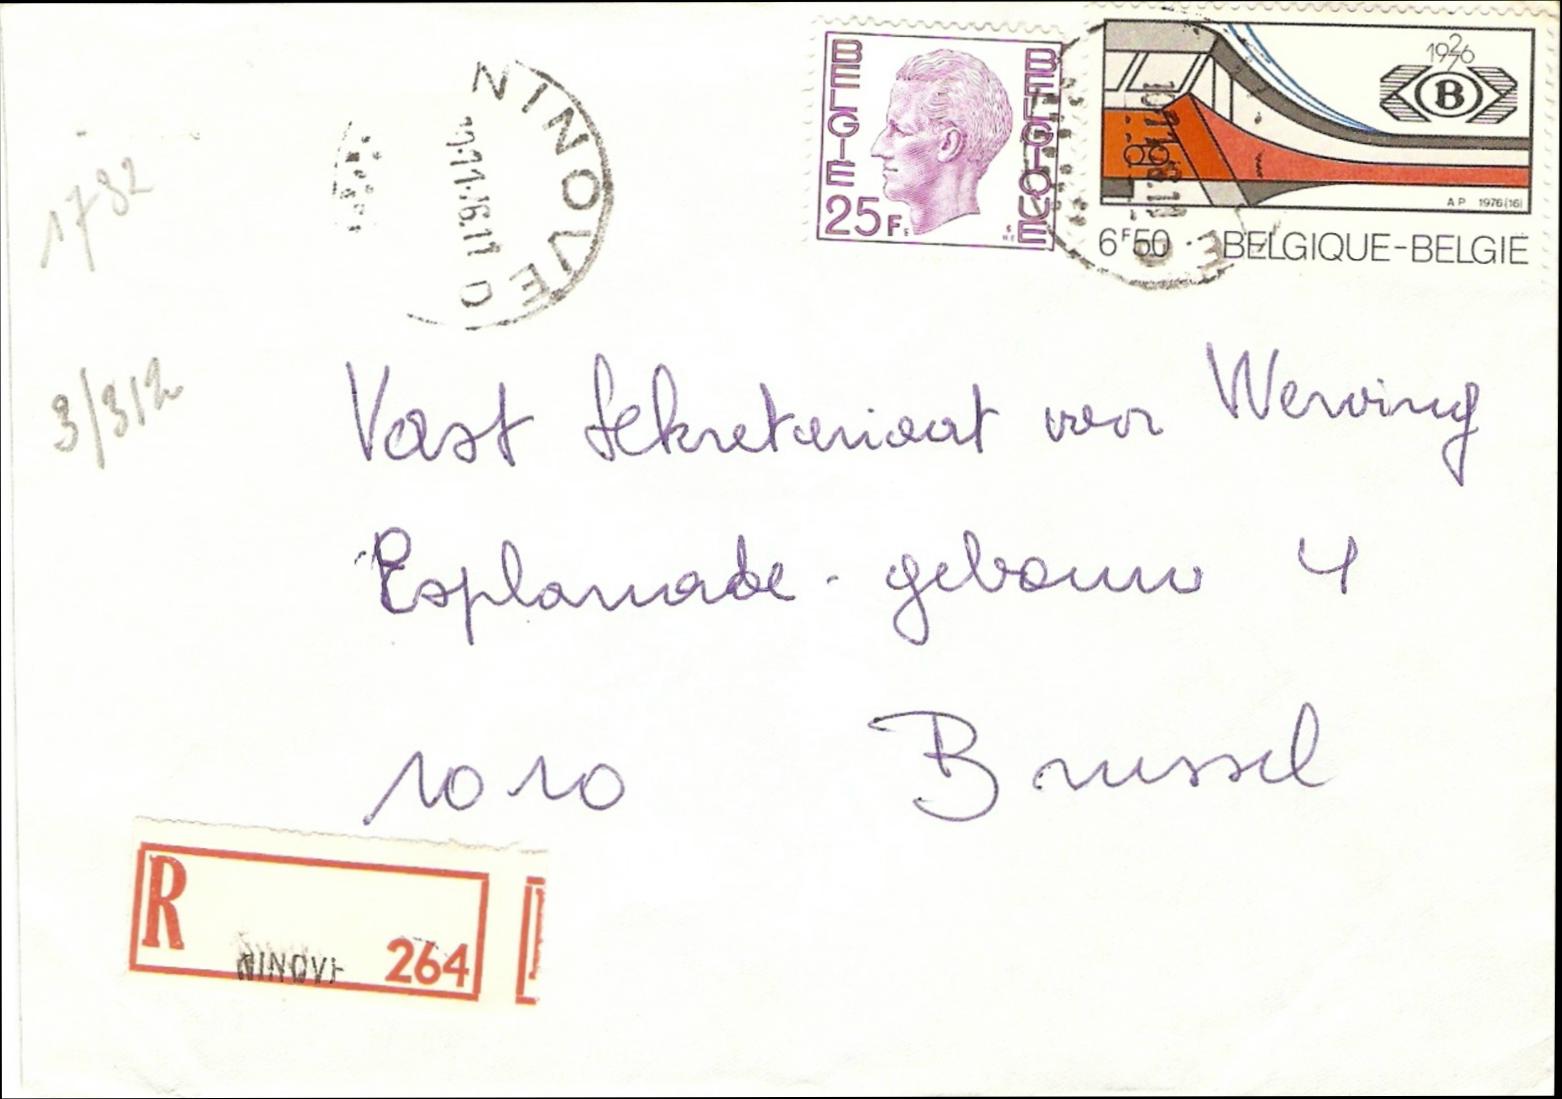 BELGIE
BELGIQUE
25F
1926
76
B
AP 1976(16)
6F50 BELGIQUE-BELGIE
NINOVE
1782
3/312
Vast Sekretariaat voor Werving
Esplanade - gebouw 4
1010 Brussel
R
NINOVE 264